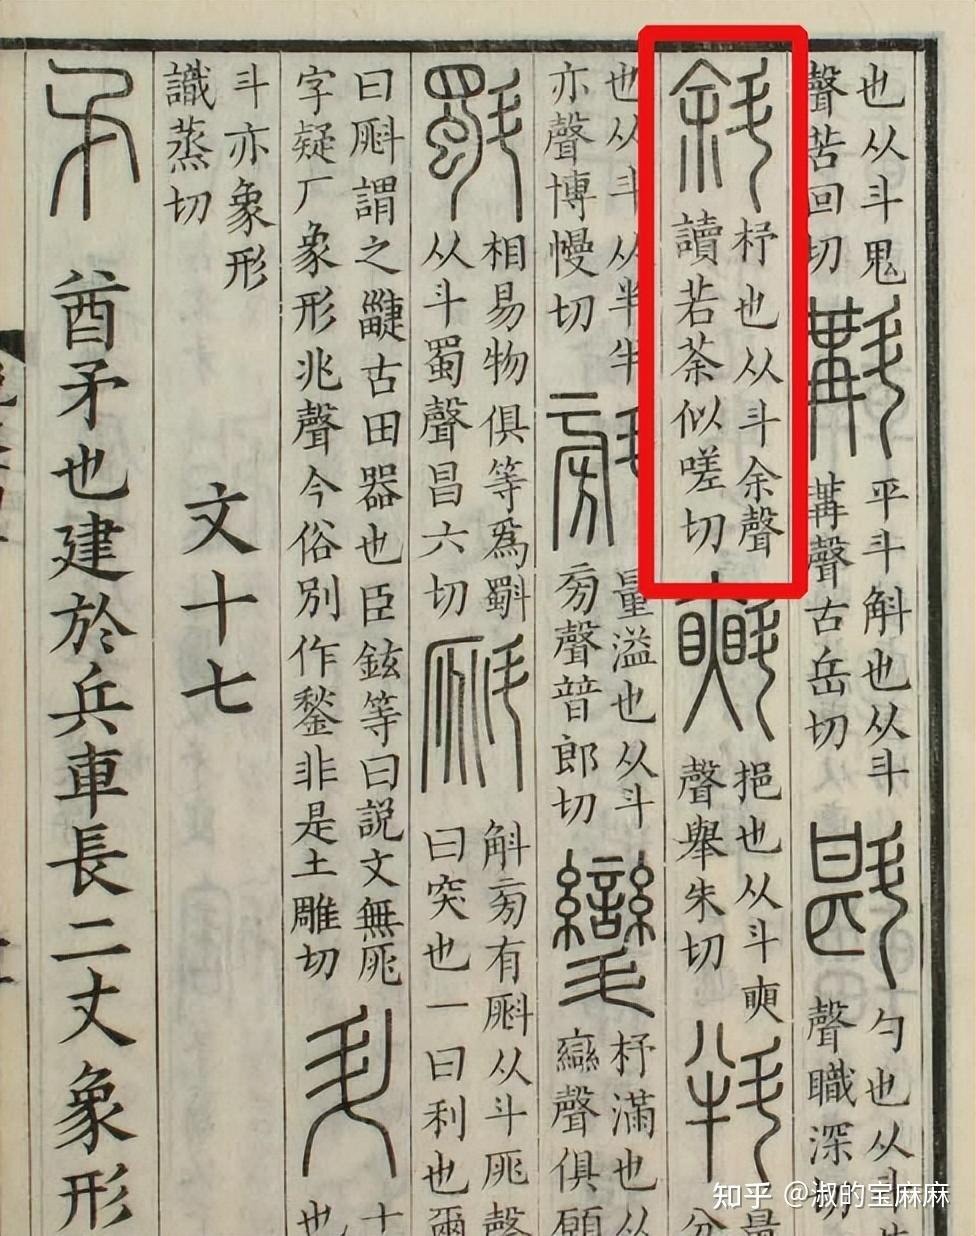 也从斗鬼
聲苦回切
斠
平斗斛也从斗
冓聲古岳切
斟
勺也从斗
聲職深切
斜
杼也从斗余聲
讀若荼似嗟切
挹也从斗
聲舉朱切
料
量
分
也从斗从半半
亦聲博慢切
量溢也从斗
㫄聲普郎切
杼滿也从
䜌聲俱願
斣
相易物俱等爲斣
从斗蜀聲昌六切
㪿
斛㫄有㪿从斗𠩓聲
曰突也一曰利也爾
曰㪿謂之疀古田器也臣鉉等曰説文無𠩓
字疑厂象形兆聲今俗別作鍫非是土雕切
升
十
也
斗亦象形
識蒸切
文十七
矛
酋矛也建於兵車長二丈象形
知乎 @淑的宝麻麻